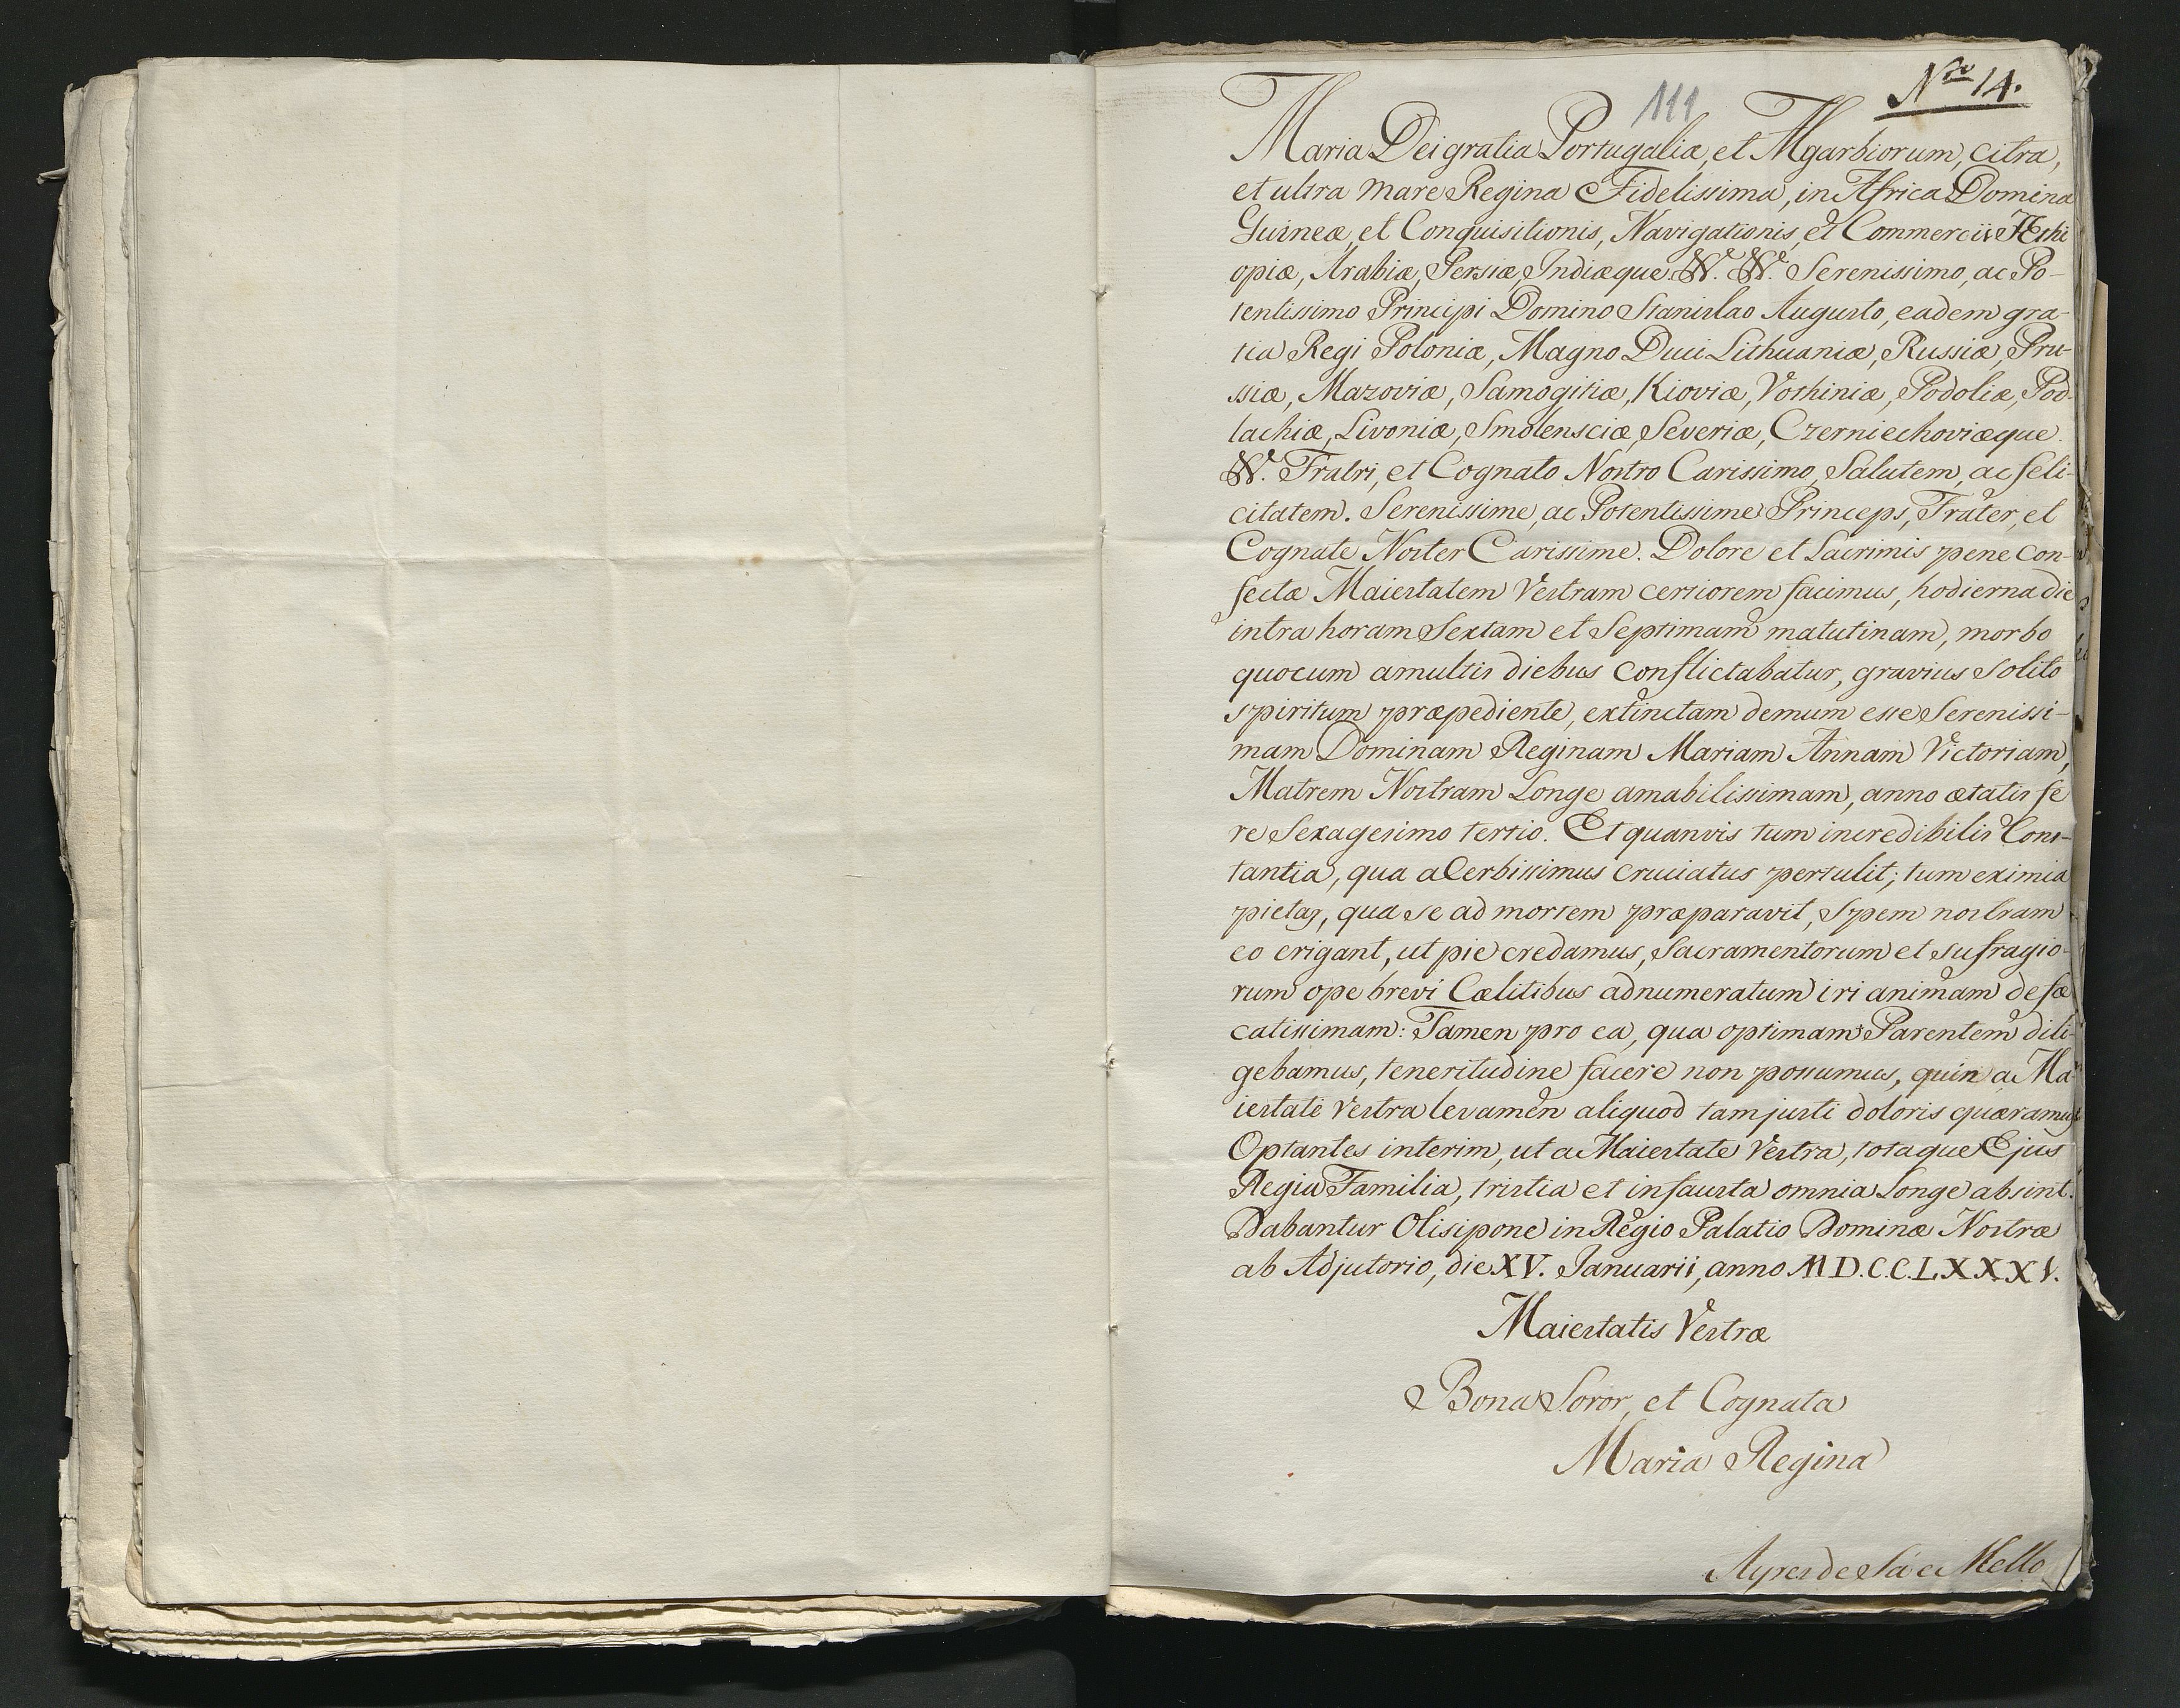 Nro 14.
111
Maria Dei gratia Portugaliæ, et Algarbiorum, citra,
et ultra mare Regina Fidelissima, in Africa Domina
Guineæ, et Conquisitionis, Navigationis, et Commercii Æthi
opiæ, Arabiæ, Persiæ, Indiæque &c. &c. Serenissimo, ac Po-
tentissimo Principi Domino Stanislao Augusto, eadem gra-
tia Regi Poloniæ, Magno Duci Lithuaniæ, Russiæ, Pru-
ssiæ, Mazoviæ, Samogitiæ, Kioviæ, Vothiniæ, Podoliæ, Pod-
lachiæ, Livoniæ, Smolensciæ, Severiæ, Czerniechoviæque.
&c. Fratri, et Cognato Nostro Carissimo, Salutem, ac feli-
citatem. Serenissime, ac Potentissime Princeps, Frater, et
Cognate Noster Carissime. Dolore et Lacrimis pene con-
fectæ Maiestatem Vestram certiorem facimus, hodierna die
intra horam Sextam et Septimam matutinam, morbo
quocum a multis diebus conflictabatur, gravius solito
spiritum præpediente, extinctam demum esse Serenissi-
mam Dominam Reginam Mariam Annam Victoriam,
Matrem Nostram Longe amabilissimam, anno ætatis fe
re Sexagesimo tertio. Et quanvis tum incredibilis Cons-
tantia, qua acerbissimus cruciatus pertulit; tum eximia
pietas, qua se ad mortem præparavit, Spem nostram
eo erigant, ut pie credamus, Sacramentorum et sufragio-
rum ope brevi Cælitibus adnumeratum iri animam defæ
catissimam: Tamen pro ea, qua optimam Parentem dili-
gebamus, teneritudine facere non possumus, quin a Ma-
iestate Vestra levamen aliquod tam justi doloris quæramus
Optantes interim, ut a Maiestate Vestra, totaque Ejus
Regia Familia, tristia et infausta omnia Longe absint.
Dabantur Olisipone in Regio Palatio Dominæ Nostræ
ab Adjutorio, die XV. Ianuarii, anno M.D.C.C.L.X.X.X.I.
Maiestatis Vestræ
Bona Soror, et Cognata
Maria Regina
Ayres de Sá e Mello